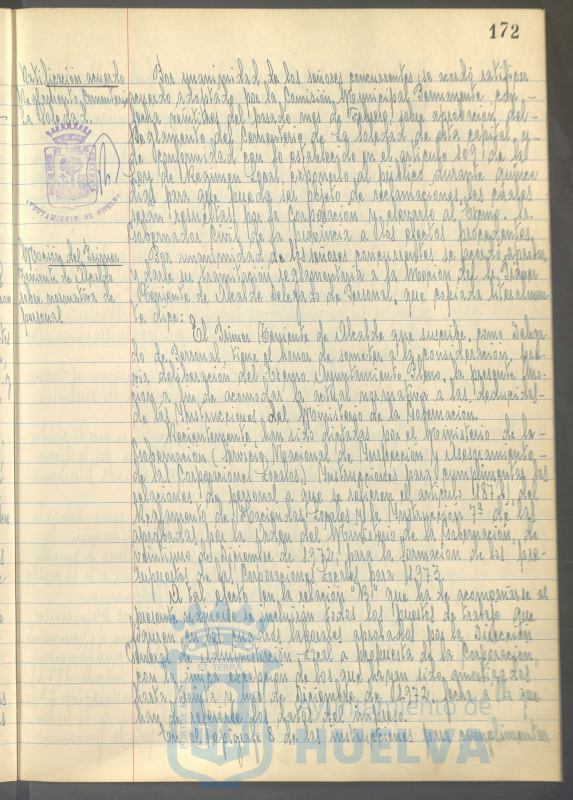 172
Ratificación acuerdo
Reglamento Cementerio
La Soledad.
Por unanimidad de los señores concurrentes se acordó ratificar
acuerdo adoptado por la Comisión Municipal Permanente con
fecha veintitres del pasado mes de Febrero sobre aprobación del
Reglamento del Cementerio de La Soledad de esta capital y
de conformidad con lo establecido en el artículo 109 de la
Ley de Régimen Local, exponerlo al público durante quince
días para que pueda ser objeto de reclamaciones, las cuales
serán resueltas por la Corporación y elevarlo al Excmo. Sr.
Gobernador Civil de la provincia a los efectos procedentes.
AYUNTAMIENTO DE HUELVA
Moción del Primer
Teniente de Alcalde
sobre normativa de
personal
Por unanimidad de los señores concurrentes se acordó aprobar
y darle su tramitación reglamentaria a la Moción del Sr. Primer
Teniente de Alcalde delegado de Personal, que copiada literalmen-
te dice:
El Primer Teniente de Alcalde que suscribe, como Delega-
do de Personal tiene el honor de someter a la consideración, pre-
via deliberación del Excmo. Ayuntamiento Pleno, la presente Mo-
ción a fin de acomodar la actual normativa a las deducidas
de las Instrucciones del Ministerio de la Gobernación.
Recientemente han sido dictadas por el Ministerio de la
Gobernación (Servicio Nacional de Inspección y Asesoramiento
de las Corporaciones Locales) Instrucciones para cumplimentar las
relaciones de personal a que se refieren el artículo 187 del
Reglamento de Haciendas Locales y la Instrucción 7ª de las
aprobadas por la Orden del Ministerio de la Gobernación, de
veintiuno de diciembre de 1972, para la formación de los pre-
supuestos de las Corporaciones Locales para 1973.
A tal efecto en la relación "B" que ha de acompañarse al
presente se incluirán todos los puestos de trabajo que
figuren en los cuadros laborales aprobados por la Dirección
General de Administración Local a propuesta de la Corporación,
con la única excepción de los que hayan sido amortizados
hasta treinta y uno de diciembre de 1972, fecha a la que
han de referirse los datos del impreso.
En el epígrafe 8 de las instrucciones para cumplimentar
Ayuntamiento de
HUELVA